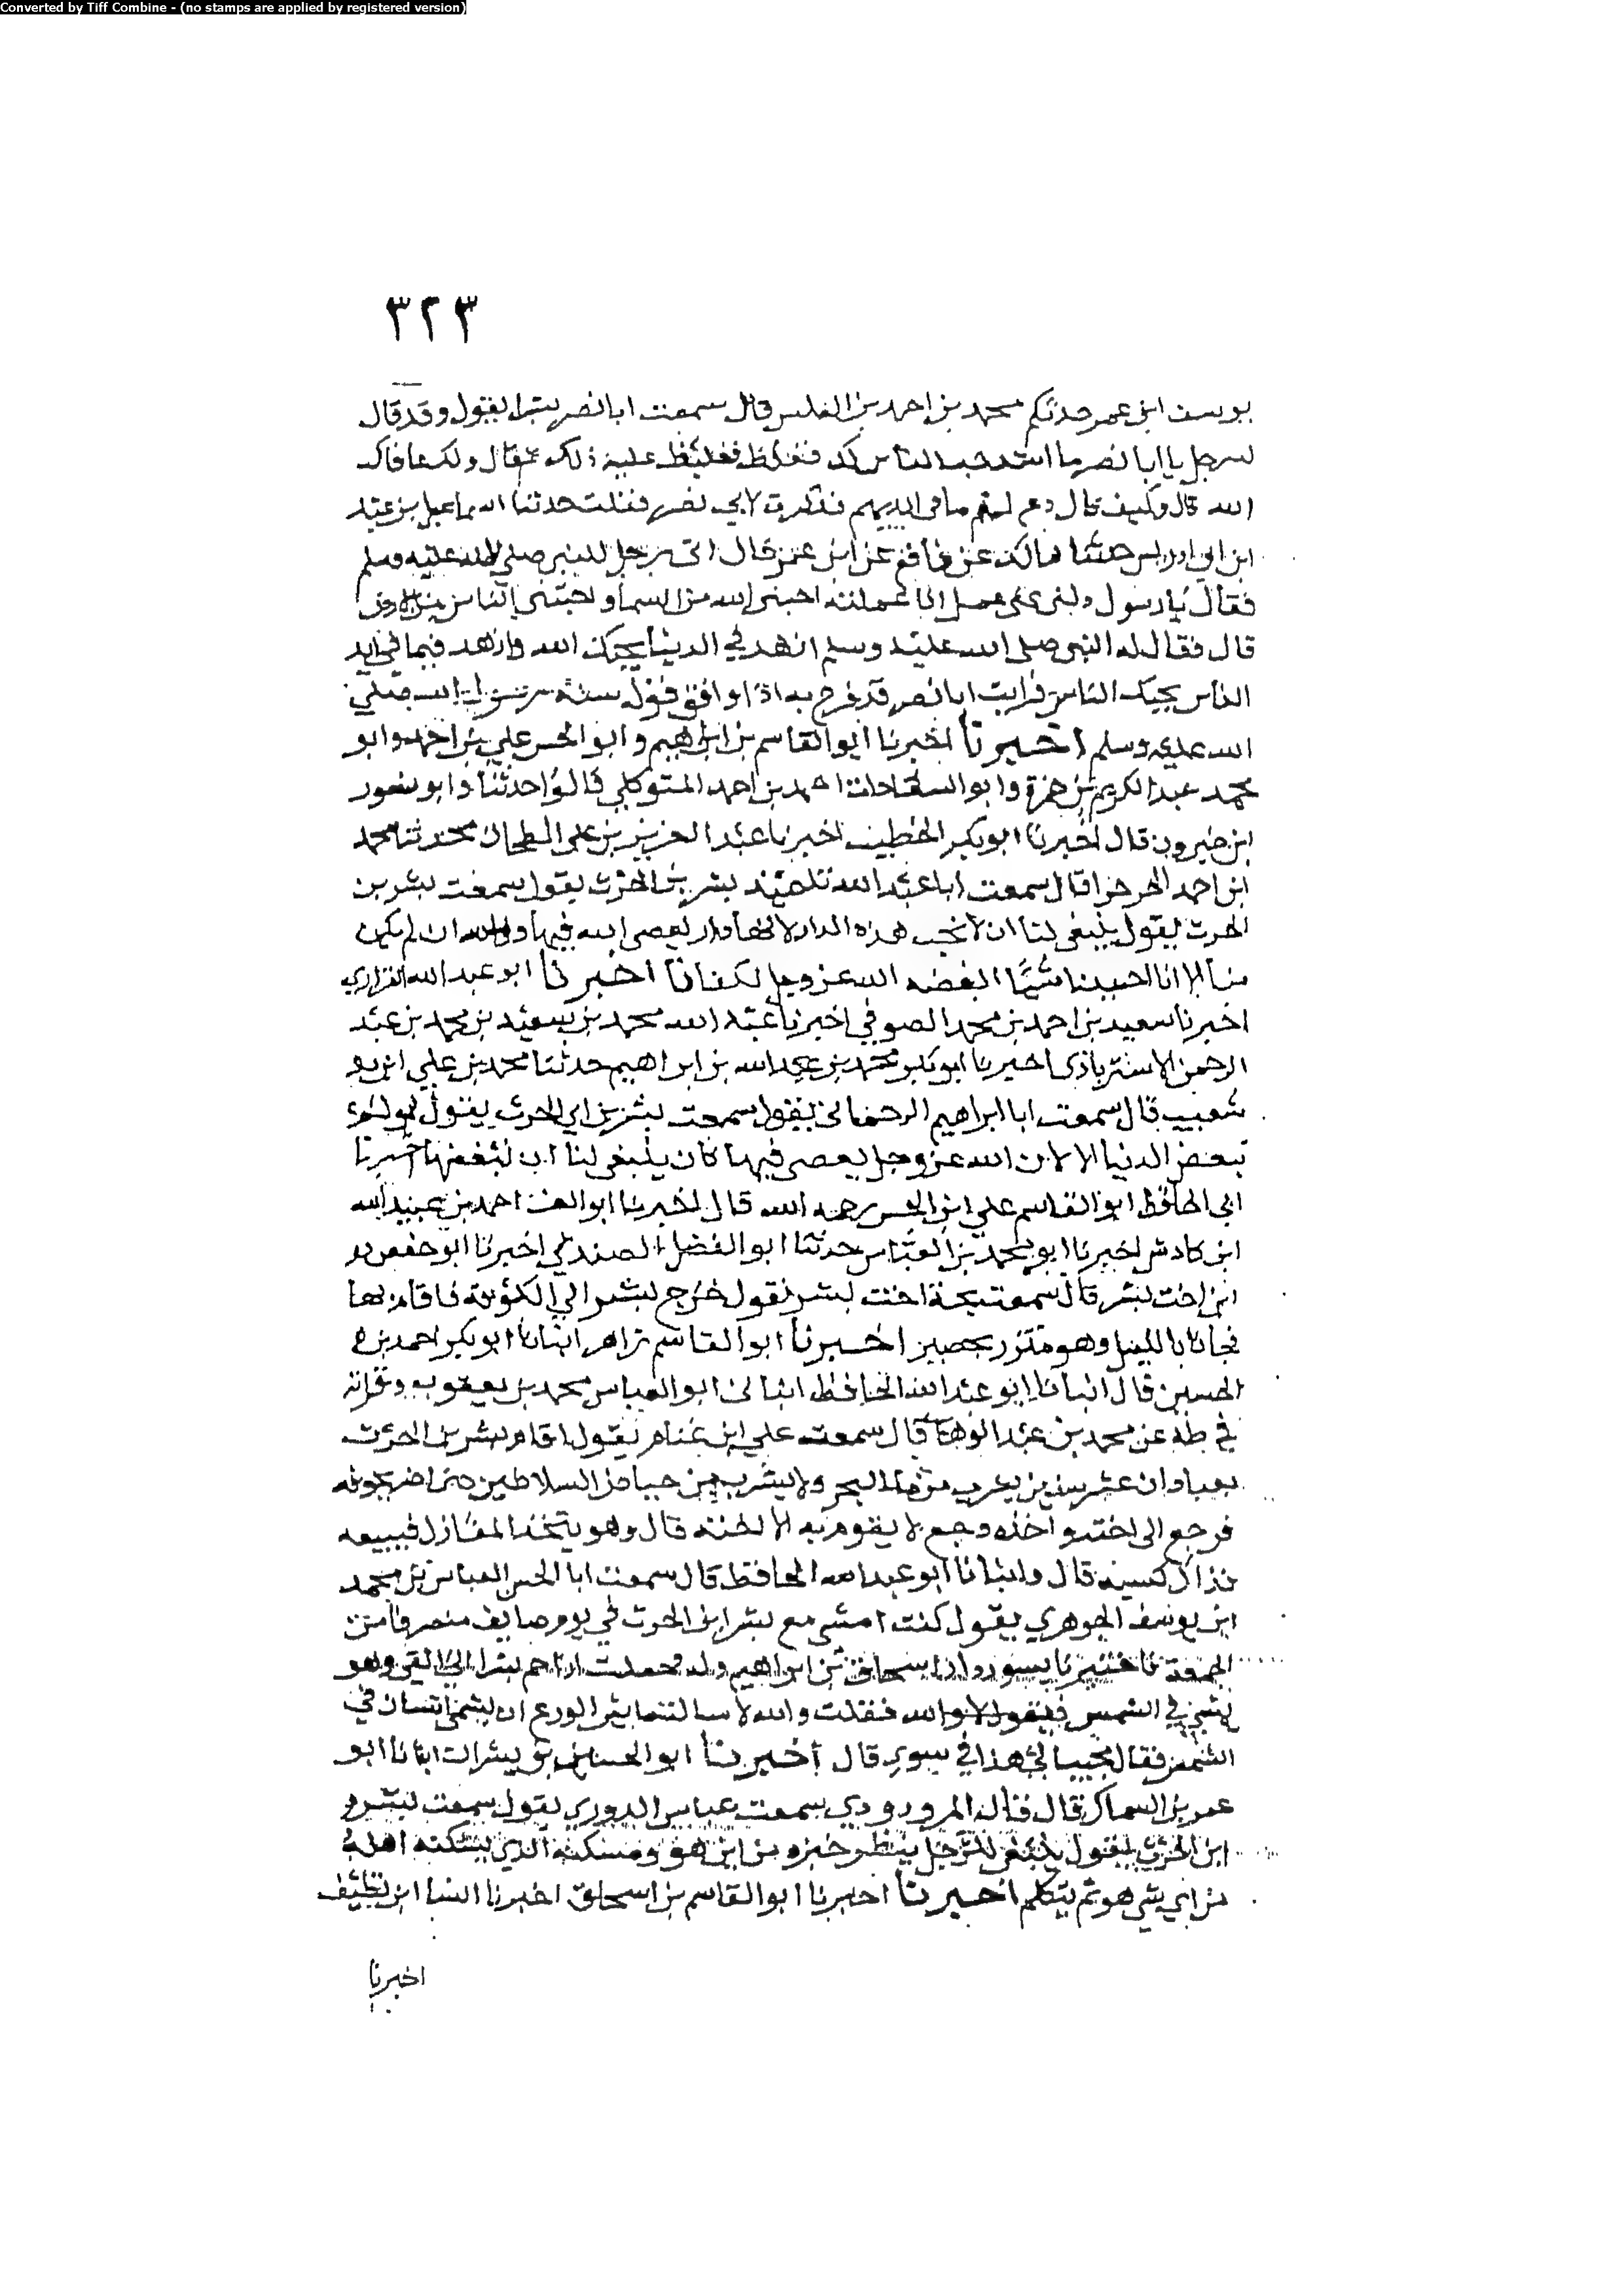 Converted by Tiff Combine - (no stamps are applied by registered version)
٣٢٣
يوسف ابن عمر حدثكم محمد بن احمد بن المغلس قال سمعت ابا نصر بشرا يقول وقد قال
له رجل يا ابا نصر ما اشد حب الناس لك فغلظ عليه ذلك ثم قال ولك عافاك
الله قال وكيف قال دع لهم ما في ايديهم فذكرت لابي نصر فقلت حدثنا اسماعيل بن عبد
ابن ابي اويس حدثنا مالك عن نافع عن ابن عمر قال اتى رجل للنبي صلى الله عليه وسلم
فقال يا رسول دلني على عمل اذا عملته احبني الله من السما واحبني الناس من الارض
قال فقال له النبي صلى الله عليه وسلم ازهد في الدنيا يحبك الله وازهد فيما في ايد
الناس يحبك الناس فرايت ابا نصر قد فرح به اذا وافق قوله سنة رسول الله صلى
الله عليه وسلم اخبرنا اخبرنا ابو القاسم بن ابراهيم وابو الحسن علي بن احمد وابو
محمد عبد الكريم بن حمزة وابو السعادات احمد بن احمد المتوكلي قالوا حدثنا وابو منصور
ابن خيرون قال اخبرنا ابو بكر الخطيب اخبرنا عبد العزيز بن علي الطحان حدثنا محمد
ابن احمد الجرجرا قال سمعت ابا عبد الله تلميذ بشر بن الحرث يقول سمعت بشر بن
الحرث يقول ينبغي لنا ان لا نحب هذه الدار لانها دار يعصى الله فيها ووالله ان لم يكن
منا الا انا احببنا شيًا ابغضه الله عز وجل لكفانا اخبرنا ابو عبد الله الفراري
اخبرنا سعيد بن احمد بن محمد الصوفي اخبرنا عبد الله محمد بن سعيد بن محمد بن عبد
الرحمن الاستراباذي اخبرنا ابو بكر محمد بن عبد الله بن ابراهيم حدثنا محمد بن علي ابن
شعيب قال سمعت ابا ابراهيم يقول سمعت بشر بن ابي الحرث يقول لو لم
نبغض الدنيا الا لان الله عز وجل يعصى فيها كان ينبغي لنا ان نبغضها اخبرنا
ابي الحافظ ابو القاسم علي ابن الحسن رحمه الله قال اخبرنا ابو العز احمد بن عبيد الله
ابن كادش اخبرنا ابو محمد بن العباس حدثنا ابو الفضل الصندلي اخبرنا ابو حفص
ابن اخت بشر قال سمعت اخت بشر تقول خرج بشر الي الكوفة فاقام بها
فجانا بالليل وهو متزر بحصير اخبرنا ابو القاسم زاهر انبانا ابو بكر احمد بن
الحسين قال انبانا ابو عبد الله الحافظ انبانى ابو العباس محمد بن يعقوب وقراته
في خطه عن محمد بن عبد الوهاب قال سمعت علي ابن غنام يقول اقام بشر بن الحرث
بعبادان عشر سنين يشرب من ما البحر ولا يشرب من حياض السلاطين حتى اضر بجوفه
فرجع الى اخته واخذه وجع لا يقوم به الا اخته قال وهو يتخذ المغازل فيبيعه
فذاك كسبه قال وانبانا ابو عبد الله الحافظ قال سمعت ابا الحسن العباس بن محمد
ابن يوسف الجوهري يقول كنت امشي مع بشر ابن الحرث في يوم صايف منصرفا من
الجمعة فاجتزنا بسور دار اسحاق بن ابراهيم وله فجعلت ازاحم بشرا الي الفي وهو
يمشي في الشمس فقلت والله لاسالنه الورع ان يمشي انسان في
الشمس فقال مجيبا لي هذا في سور قال اخبرنا ابو الحسين بن بشران انبانا ابو
عمر بن السماك قال قال المرورودي سمعت عباس الدوري يقول سمعت بشر
ابن الحرث يقول ينبغي للرجل ينظر خبزه من اين هو ومسكنه الذي يسكنه اهله
من اي شي هو ثم يتكلم اخبرنا اخبرنا ابو القاسم بن اسحاق اخبرنا ابن نظيف
اخبرنا